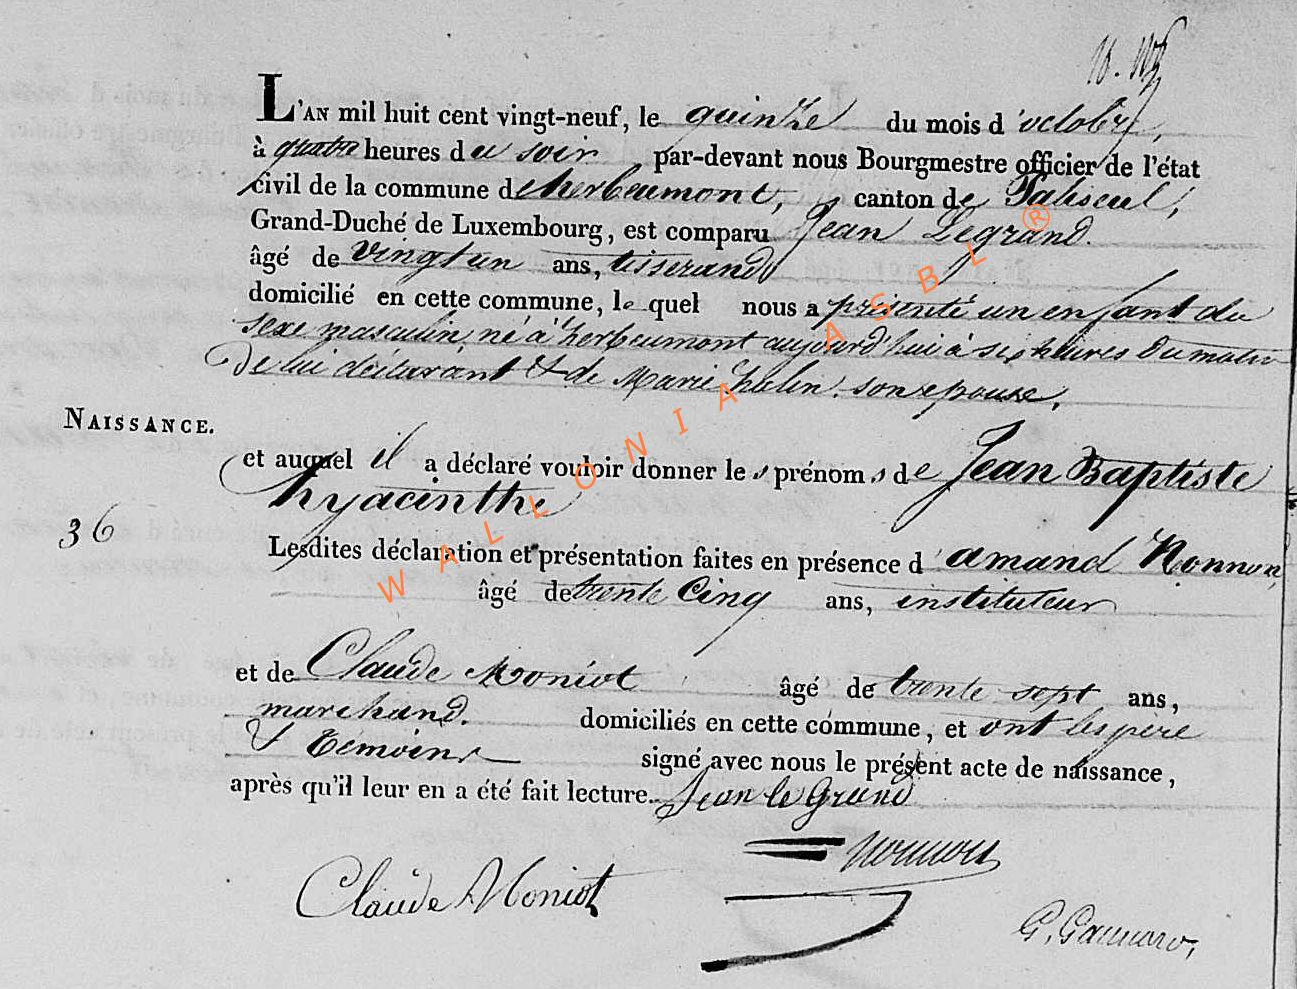 L'AN mil huit cent vingt-neuf, le quinze du mois d'octobre,
à quatre heures du soir par-devant nous Bourgmestre officier de l'état
civil de la commune d'herbeumont, canton de Paliseul,
Grand-Duché de Luxembourg, est comparu Jean Legrand.
âgé de vingt un ans, tisserand
domicilié en cette commune, lequel nous a présenté un enfant du
sexe masculin, né à herbeumont aujourd'hui à sept heures du matin
De lui déclarant & de Marie son epouse.
NAISSANCE.
et auquel il a déclaré vouloir donner les prénoms de Jean Baptiste
hyacinthe
36
Lesdites déclaration et présentation faites en présence d'amand Nonnon,
âgé de trente Cinq ans, instituteur
et de Claude Moniot âgé de trente sept ans,
marchand. domiciliés en cette commune, et ont les père
& temoins signé avec nous le présent acte de naissance,
après qu'il leur en a été fait lecture. Jean le Grand
nonnon
Claude Moniot
WALLONIA ASBL ®